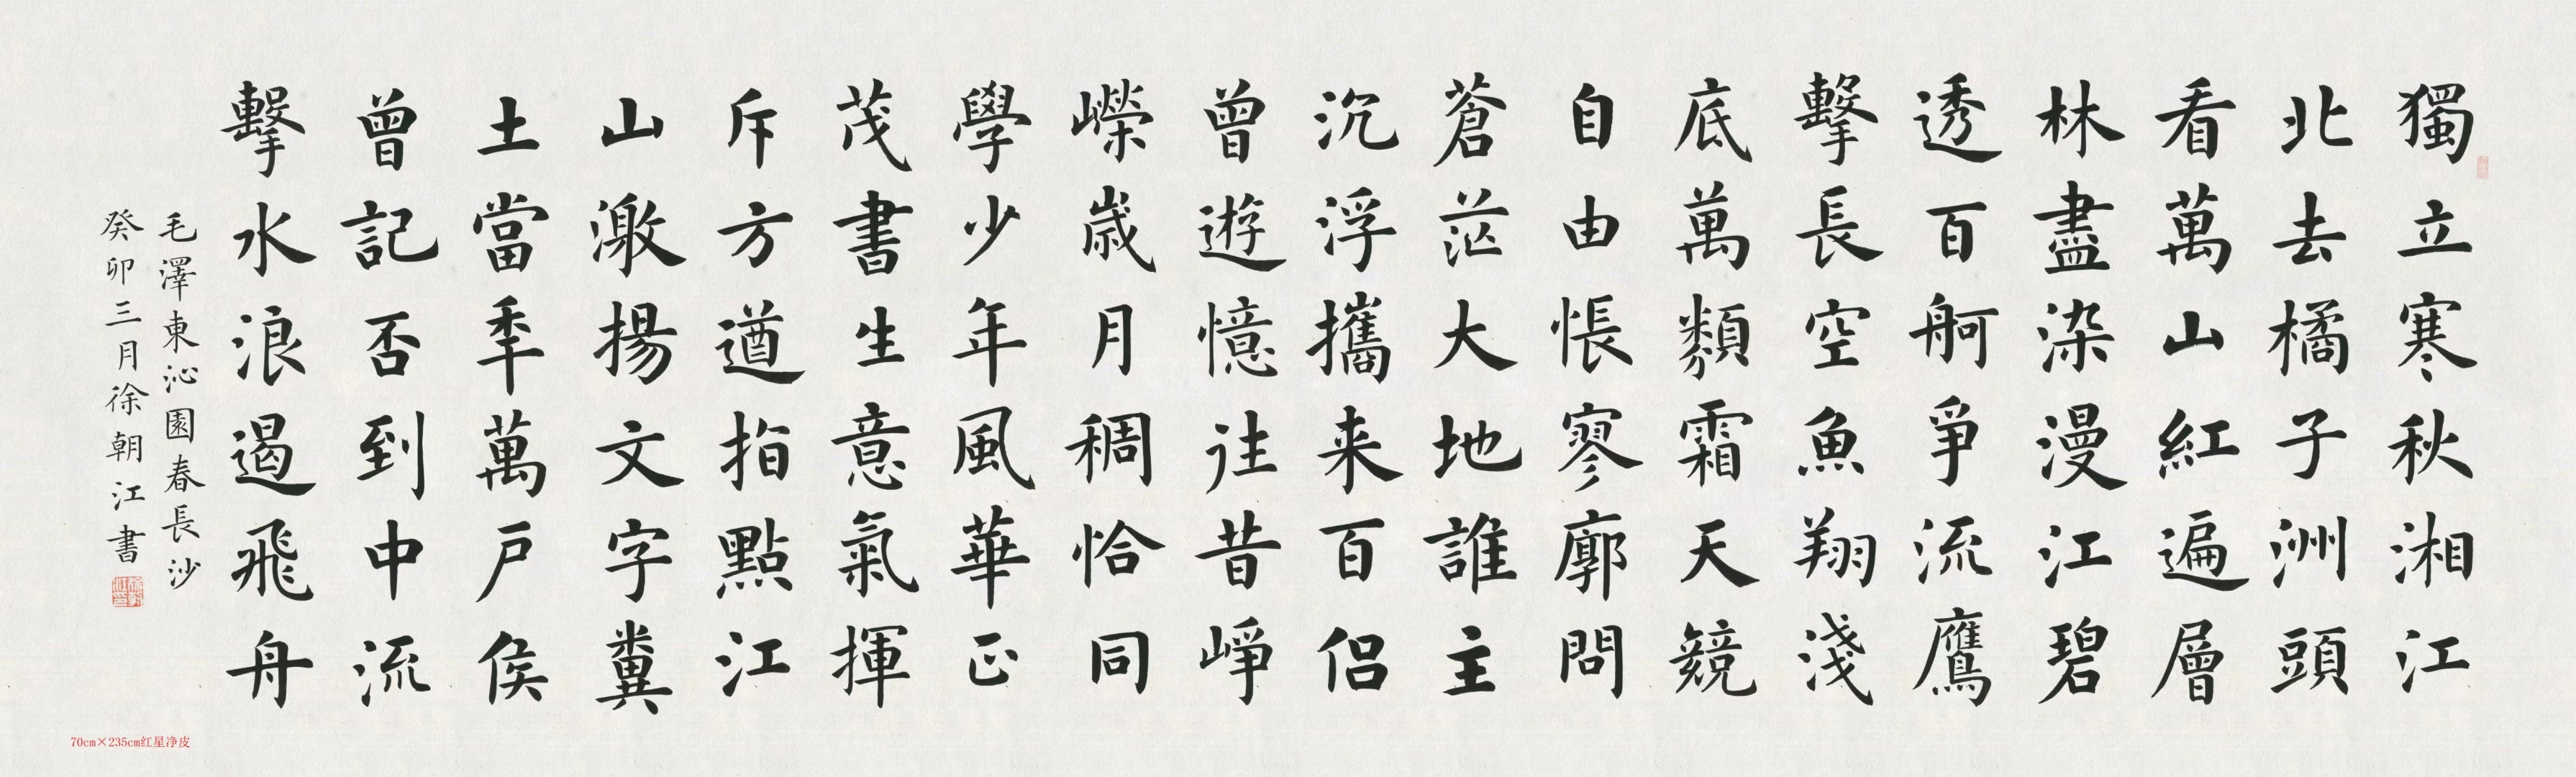 獨立寒秋湘江
北去橘子洲頭
看萬山紅遍層
林盡染漫江碧
透百舸爭流鷹
擊長空魚翔淺
底萬類霜天競
自由悵寥廓問
蒼茫大地誰主
沉浮攜来百侶
曾遊憶往昔崢
嶸歲月稠恰同
學少年風華正
茂書生意氣揮
斥方遒指點江
山激揚文字糞
土當年萬戶侯
曾記否到中流
擊水浪遏飛舟
毛澤東沁園春長沙
癸卯三月徐朝江書
70cm×235cm红星净皮